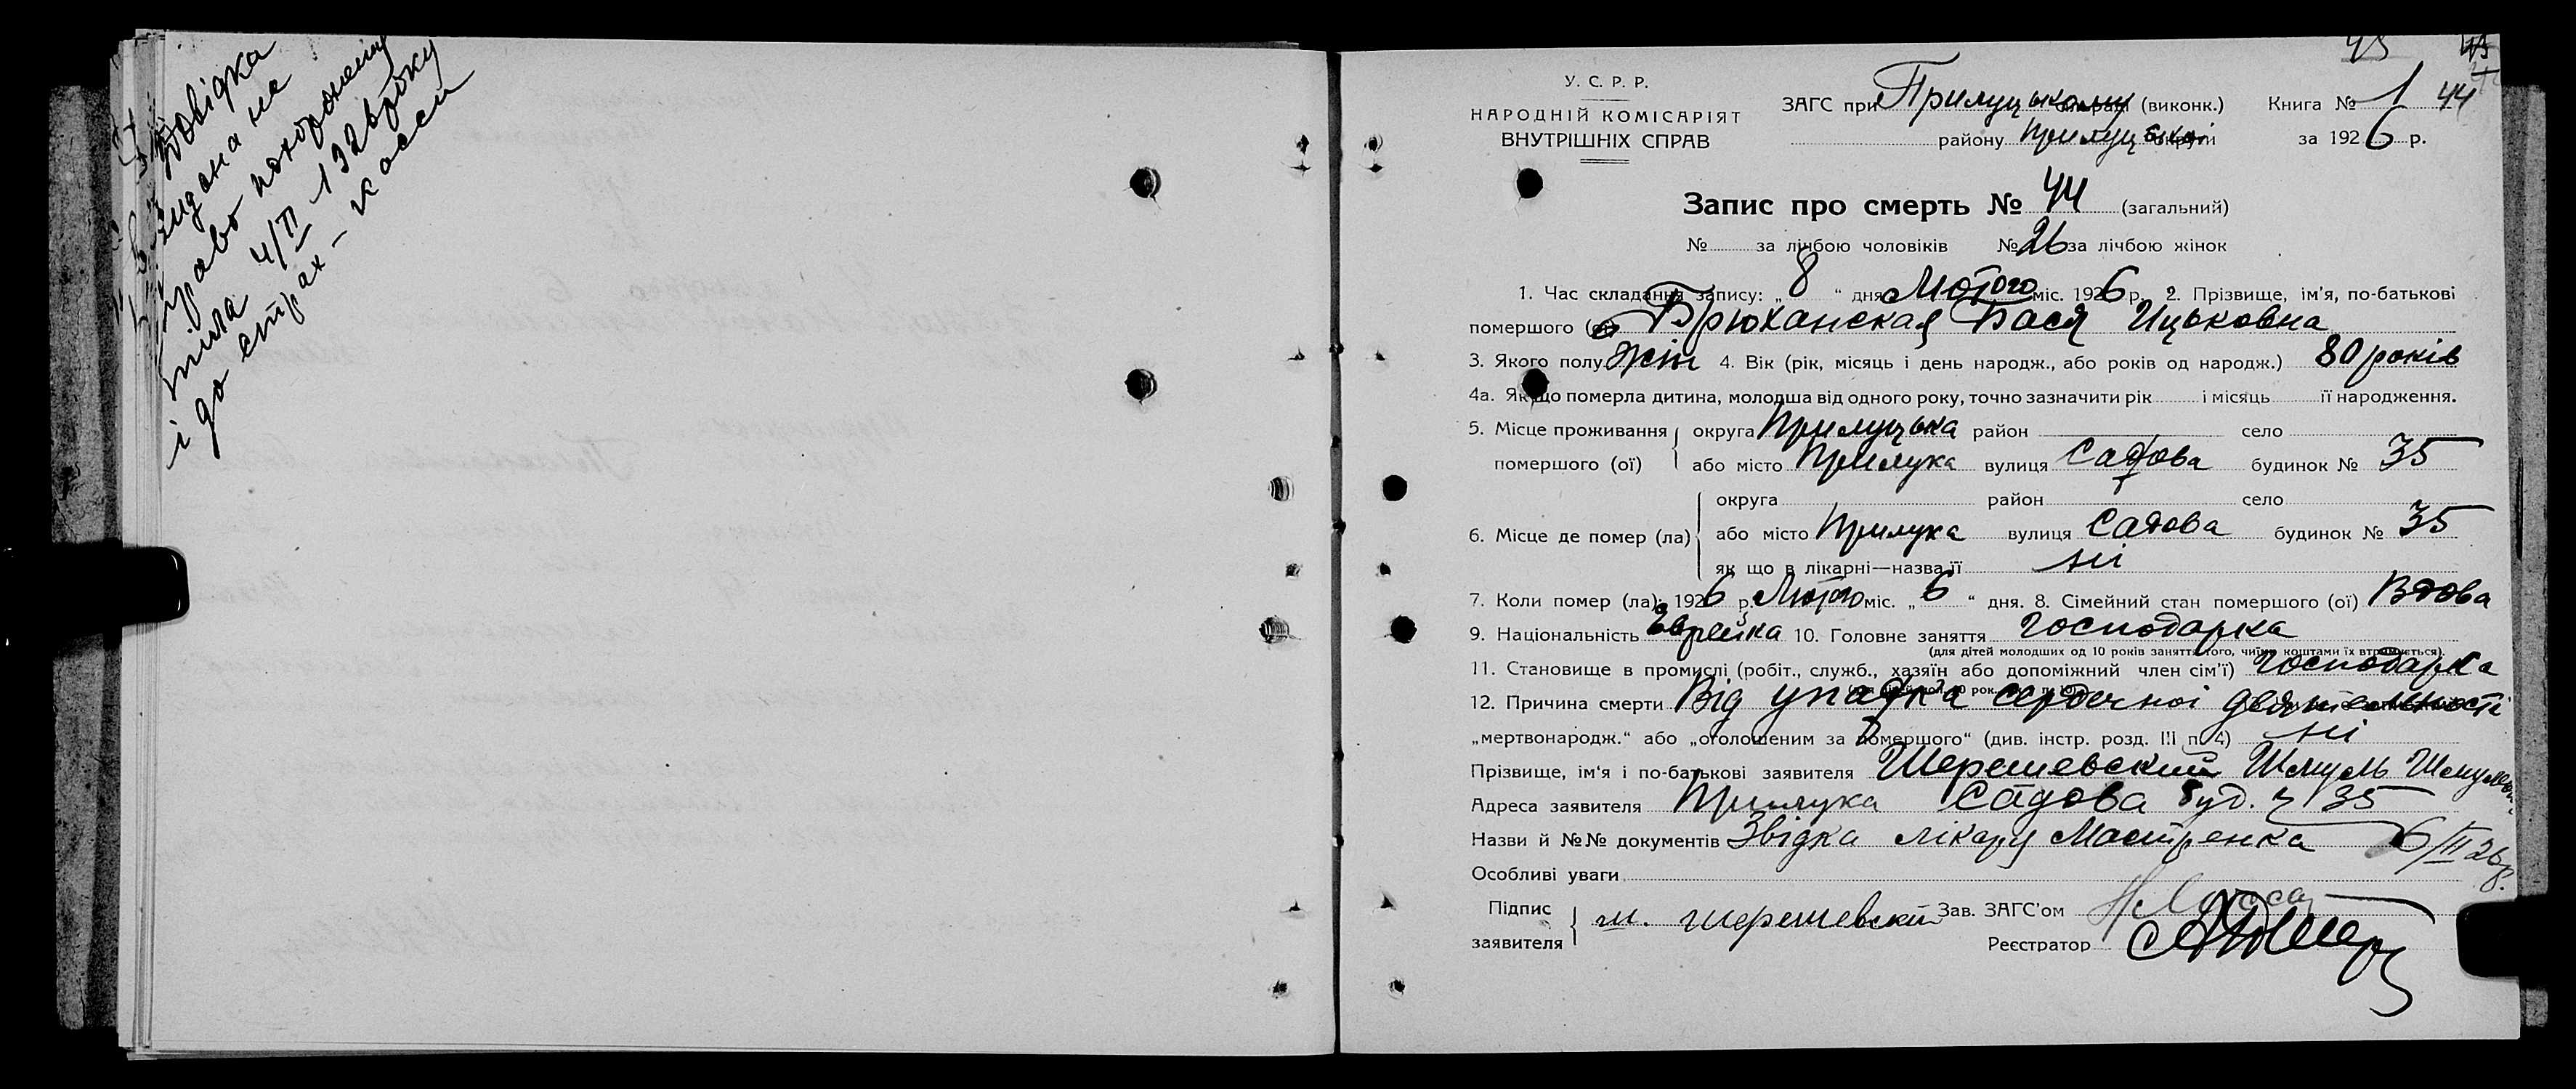 Довідка
видана на
право похоронення
тіла 4/II 1926 року
і до страх-касси
45
У. С. Р. Р.
НАРОДНІЙ КОМІСАРІЯТ
ВНУТРІШНІХ СПРАВ
ЗАГС при Прилуцькому (виконк.) Книга № 1 44
району Прилуцької округи за 1926 р.
Запис про смерть № 44 (загальний)
№ за лічбою чоловіків № 26 за лічбою жінок
1. Час складання запису: „ 8 “ дня Лютого міс. 1926 р. 2. Прізвище, ім'я, по-батькові
помершого Брюханская Бася Ицьковна
3. Якого полу жін 4. Вік (рік, місяць і день народж., або років од народж.) 80 років
4а. Якщо померла дитина, молодша від одного року, точно зазначити рік і місяць її народження.
5. Місце проживання помершого (ої) округа Прилуцька район село
або місто Прилука вулиця Садова будинок № 35
6. Місце де помер (ла) округа район село
або місто Прилука вулиця Садова будинок № 35
як що в лікарні—назва її ні
7. Коли помер (ла): 1926 р. Лютого міс. „ 6 “ дня. 8. Сімейний стан помершого (ої) Вдова
9. Національність Єврейка 10. Головне заняття господарка
(для дітей молодших од 10 років заняття того, чиїми коштами їх втримується).
11. Становище в промислі (робіт., служб., хазяїн або допоміжний член сім'ї) господарка
12. Причина смерти Від упадка сердечної деятельності
„мертвонародж.“ або „оголошеним за помершого“ (див. інстр. розд. III п. 4) ні
Прізвище, ім'я і по-батькові заявителя Шерешевский Шмуль
Адреса заявителя Прилука Садова буд. ч 35
Назви й №№ документів Звідка лікару Мастренка 6/III 26 р.
Особливі уваги
Підпис заявителя ш. шерешевский Зав. ЗАГС'ом
Реєстратор